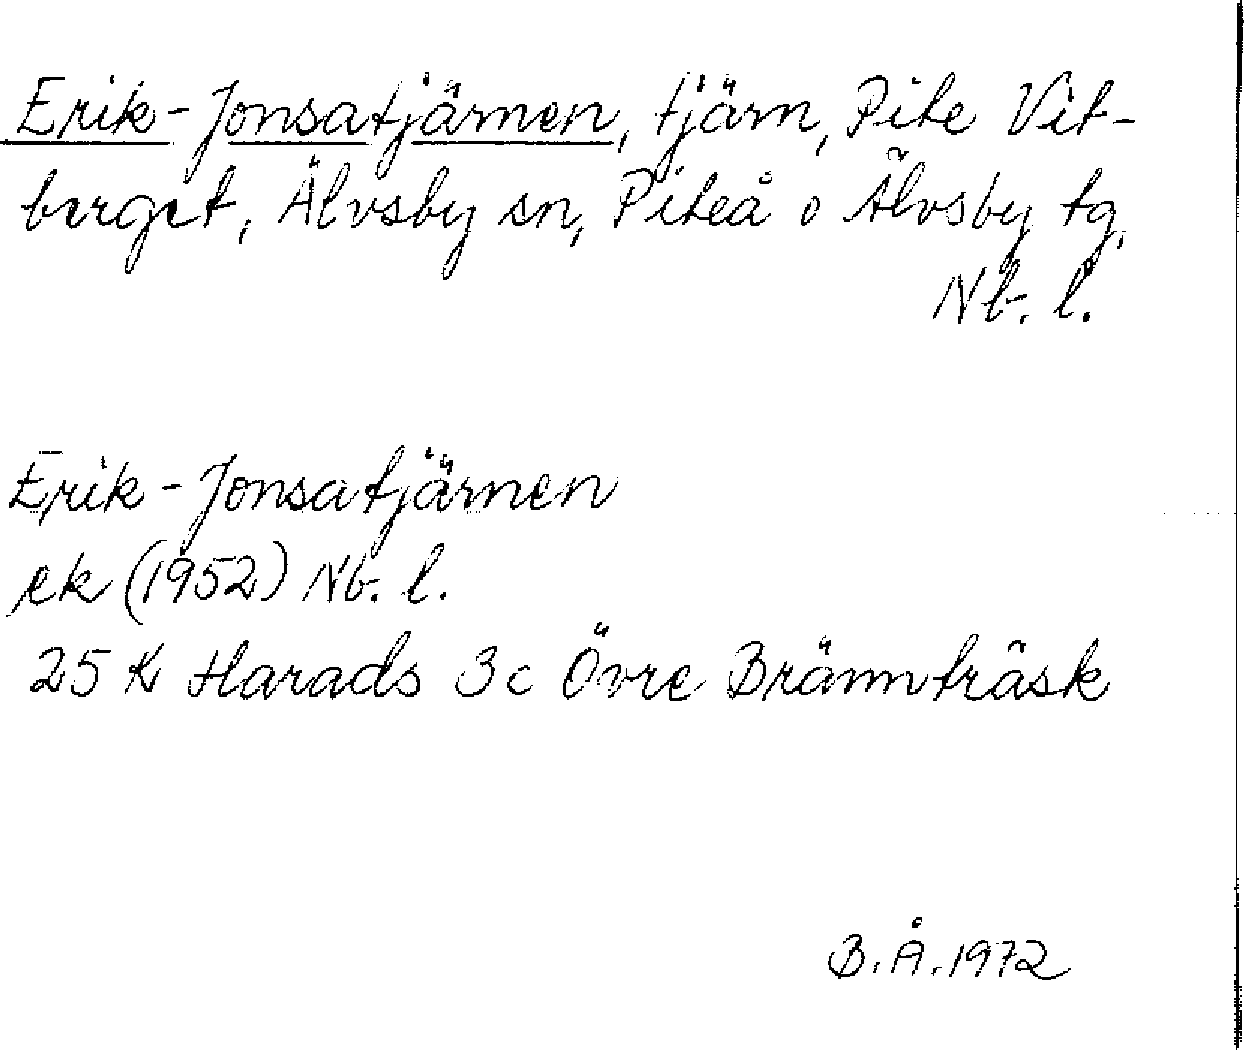 Erik-Jonsatjärnen, tjärn, Pite Vit-
berget, Älvsby sn, Piteå o Älvsby tg,
Nb. l.
Erik-Jonsatjärnen
ek (1952) Nb. l.
25 K Harads 3c Övre Brännträsk
B.Å.1972